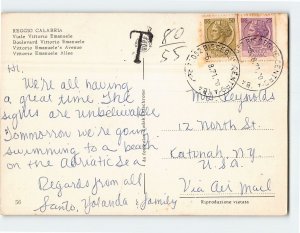 REGGIO CALABRIA
Viale Vittorio Emanuele
Boulevard Vittorio Emanuele
Vittorio Emanuele's Avenue
Vittorio Emanuele Allee
T 80
55
Hi.
We're all having
a great time. The
sights are unbelievable
Tomorrow we're going
swimming to a beach
on the Adriatic Sea
Regards from all
Santo, Yolanda & family
Mr Reynolds
12 North St.
Katonah, N.Y.
U.S.A.
Via Air Mail
56
Riproduzione vietata